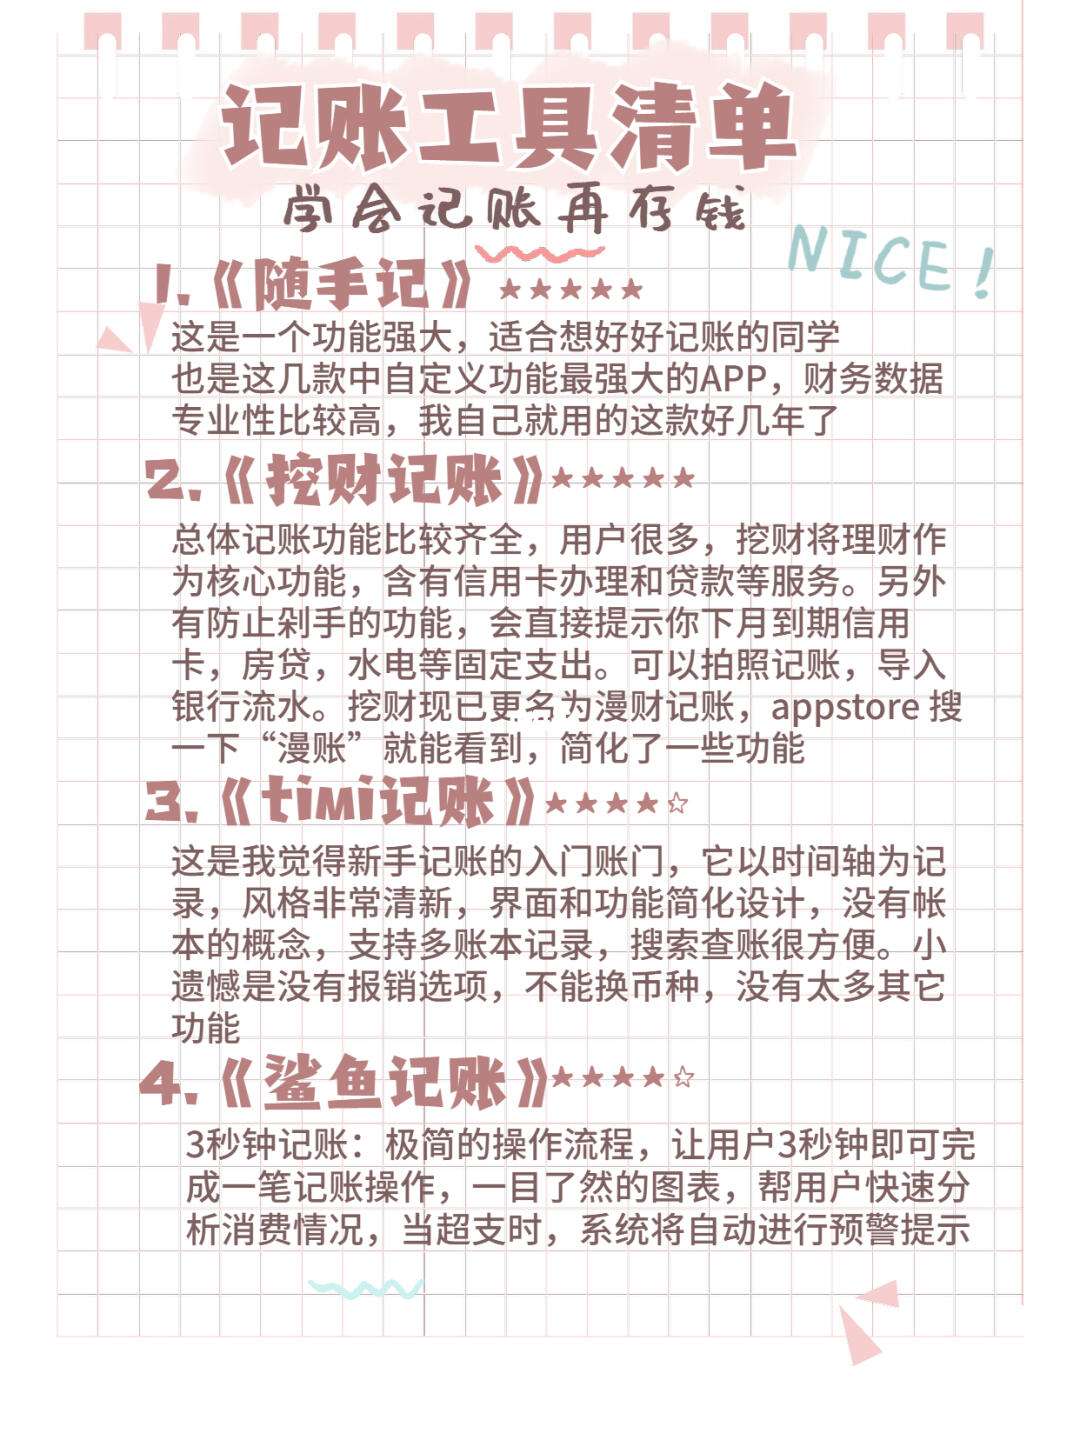 记账工具清单
学会记账再存钱
NICE!
1.《随手记》★★★★★
这是一个功能强大，适合想好好记账的同学
也是这几款中自定义功能最强大的APP，财务数据
专业性比较高，我自己就用的这款好几年了
2.《挖财记账》★★★★★
总体记账功能比较齐全，用户很多，挖财将理财作
为核心功能，含有信用卡办理和贷款等服务。另外
有防止剁手的功能，会直接提示你下月到期信用
卡，房贷，水电等固定支出。可以拍照记账，导入
银行流水。挖财现已更名为漫财记账，appstore 搜
一下“漫账”就能看到，简化了一些功能
3.《timi记账》★★★★☆
这是我觉得新手记账的入门账门，它以时间轴为记
录，风格非常清新，界面和功能简化设计，没有帐
本的概念，支持多账本记录，搜索查账很方便。小
遗憾是没有报销选项，不能换币种，没有太多其它
功能
4.《鲨鱼记账》★★★★☆
3秒钟记账：极简的操作流程，让用户3秒钟即可完
成一笔记账操作，一目了然的图表，帮用户快速分
析消费情况，当超支时，系统将自动进行预警提示